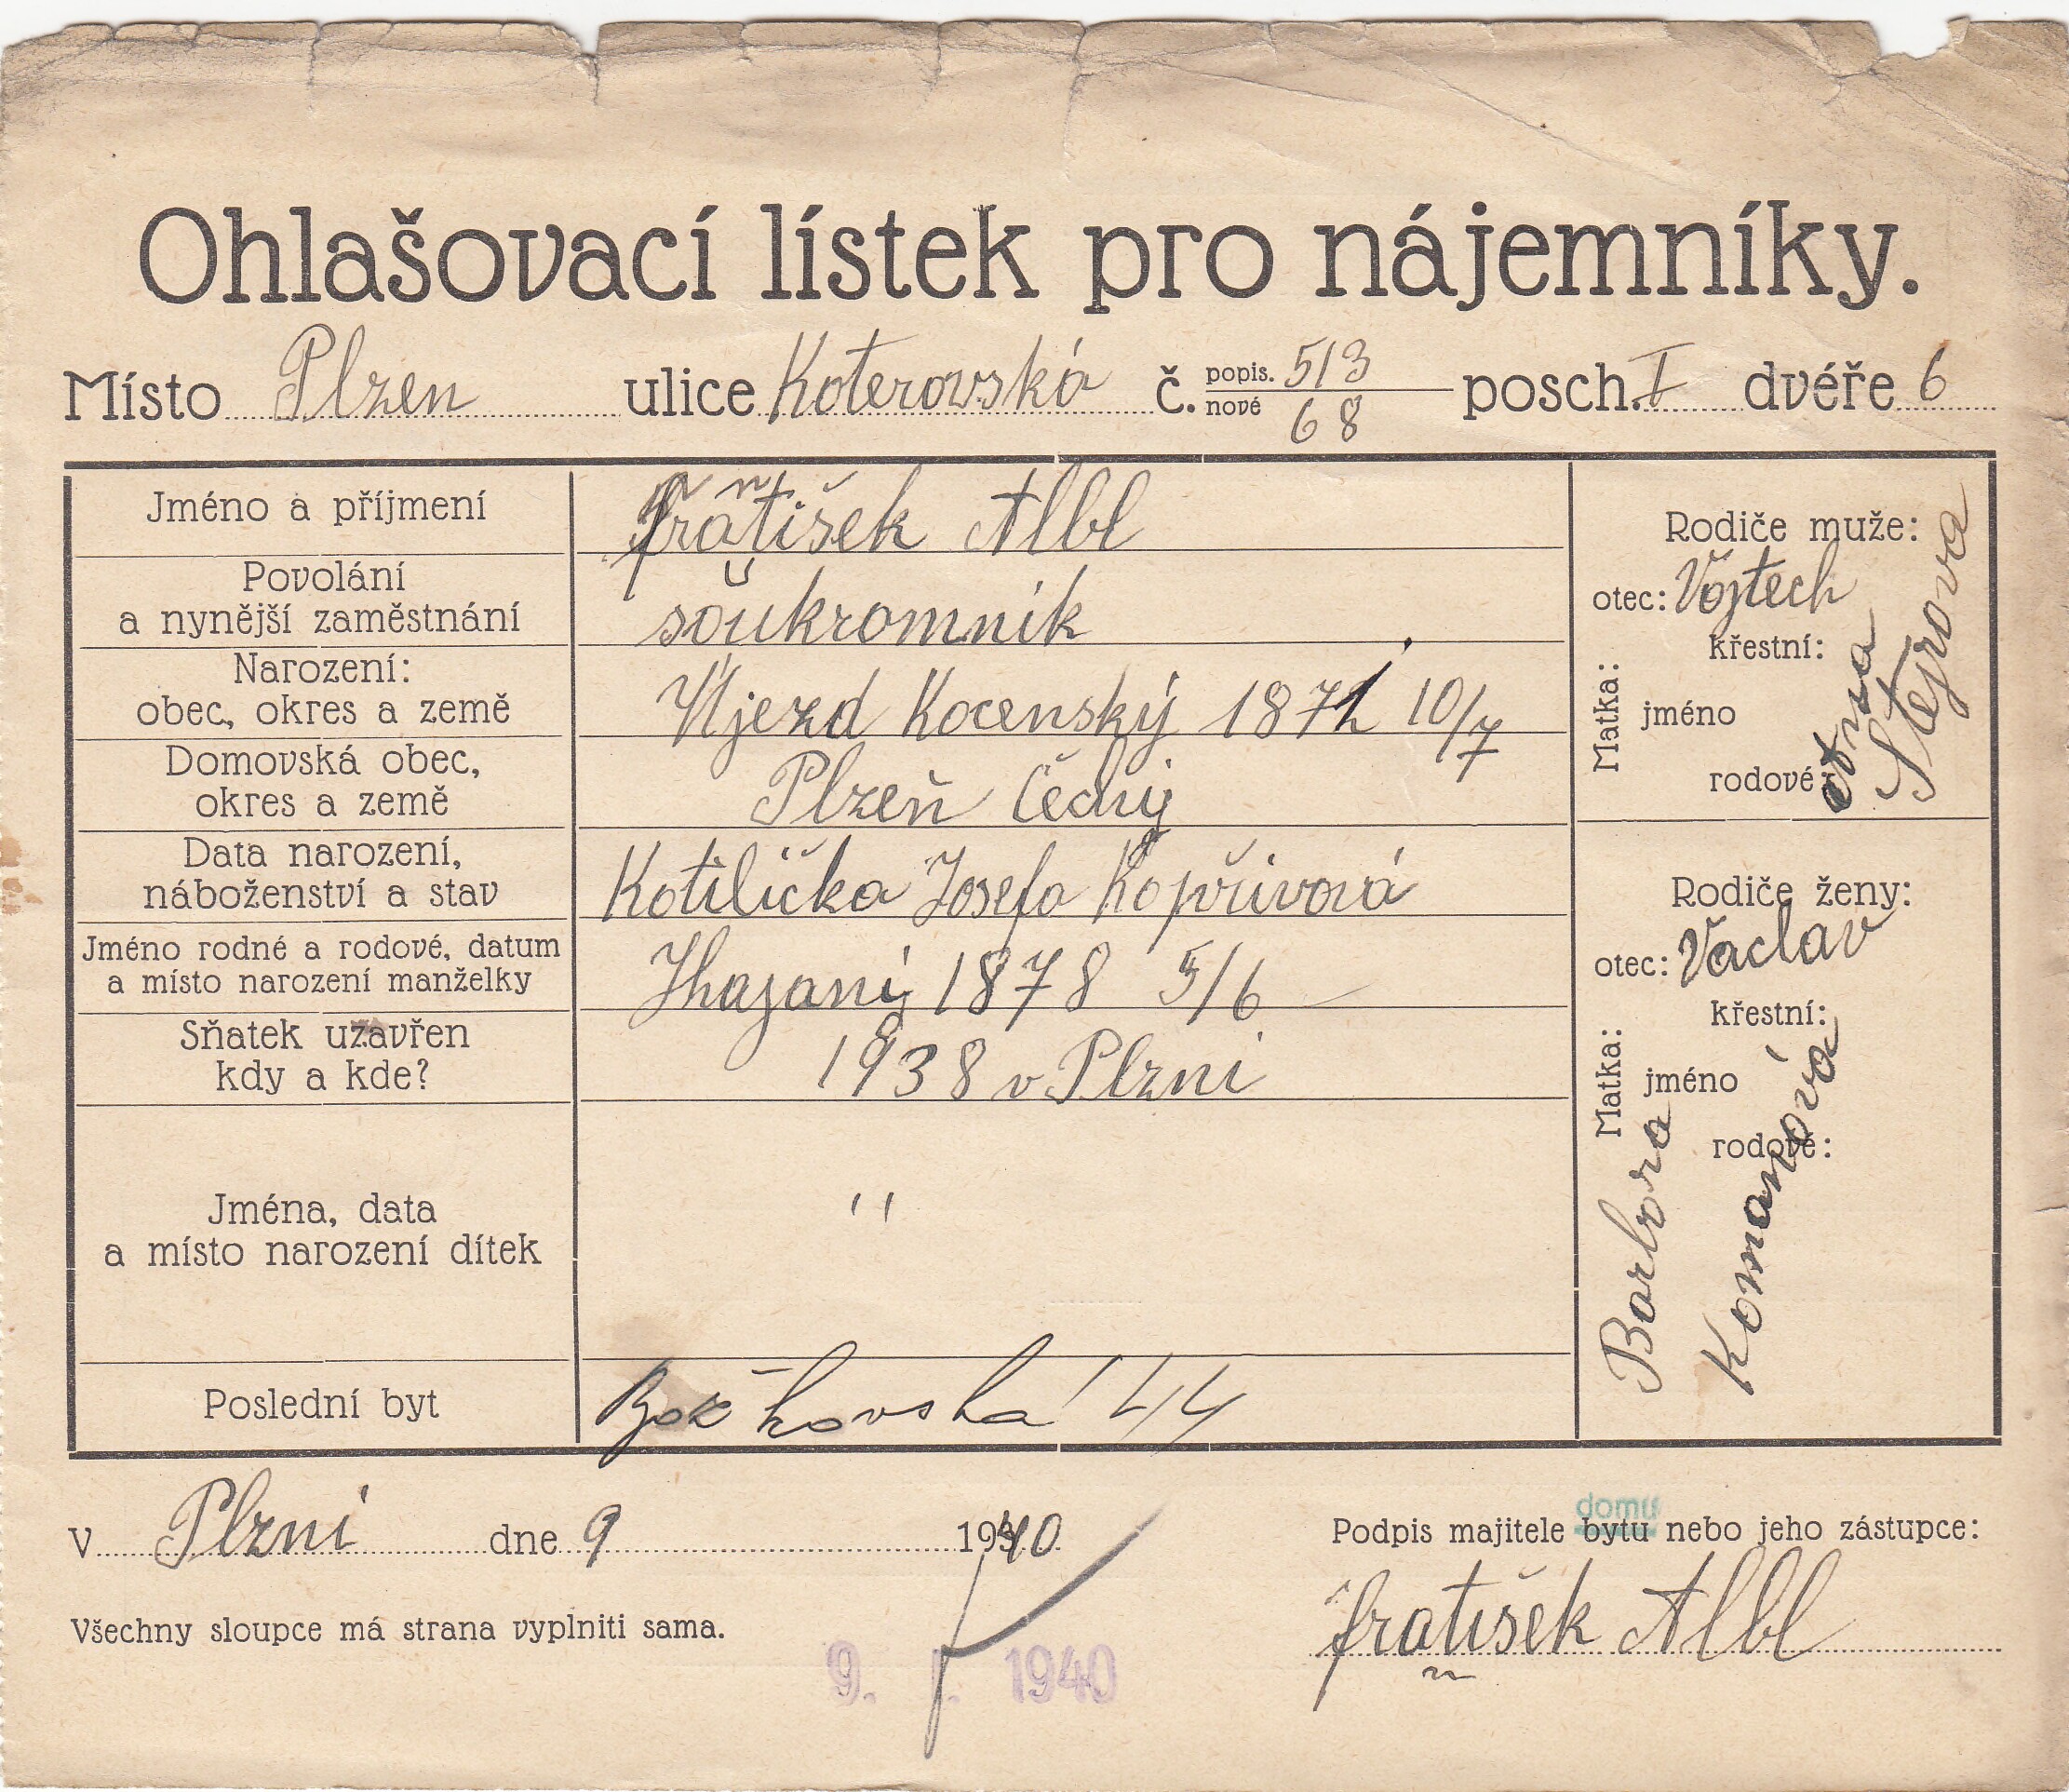 Ohlašovací lístek pro nájemníky.
Místo Plzen ulice Koterovská č. popis. 513 nové 68 posch. I dvéře 6
Jméno a příjmení
Fratišek Albl
n
Povolání
a nynější zaměstnání
soukromnik
Narození:
obec, okres a země
Újezd Kocenský 1871 10/7
Domovská obec,
okres a země
Plzeň Čechy
Data narození,
náboženství a stav
Kotilička Josefa Kopřivová
Jméno rodné a rodové, datum
a místo narození manželky
1878 5/6
Sňatek uzavřen
kdy a kde?
1938 v Plzni
Jména, data
a místo narození dítek
''
Poslední byt
144
Rodiče muže:
otec: Vojtech
Matka:
křestní:
jméno
rodové:
Anna
Stejrova
Rodiče ženy:
otec: Vaclav
Matka:
křestní:
jméno
rodové:
Barbora
Komanová
V Plzni dne 9 1940
Všechny sloupce má strana vyplniti sama.
9. I. 1940
domu
Podpis majitele bytu nebo jeho zástupce:
Fratišek Albl
n